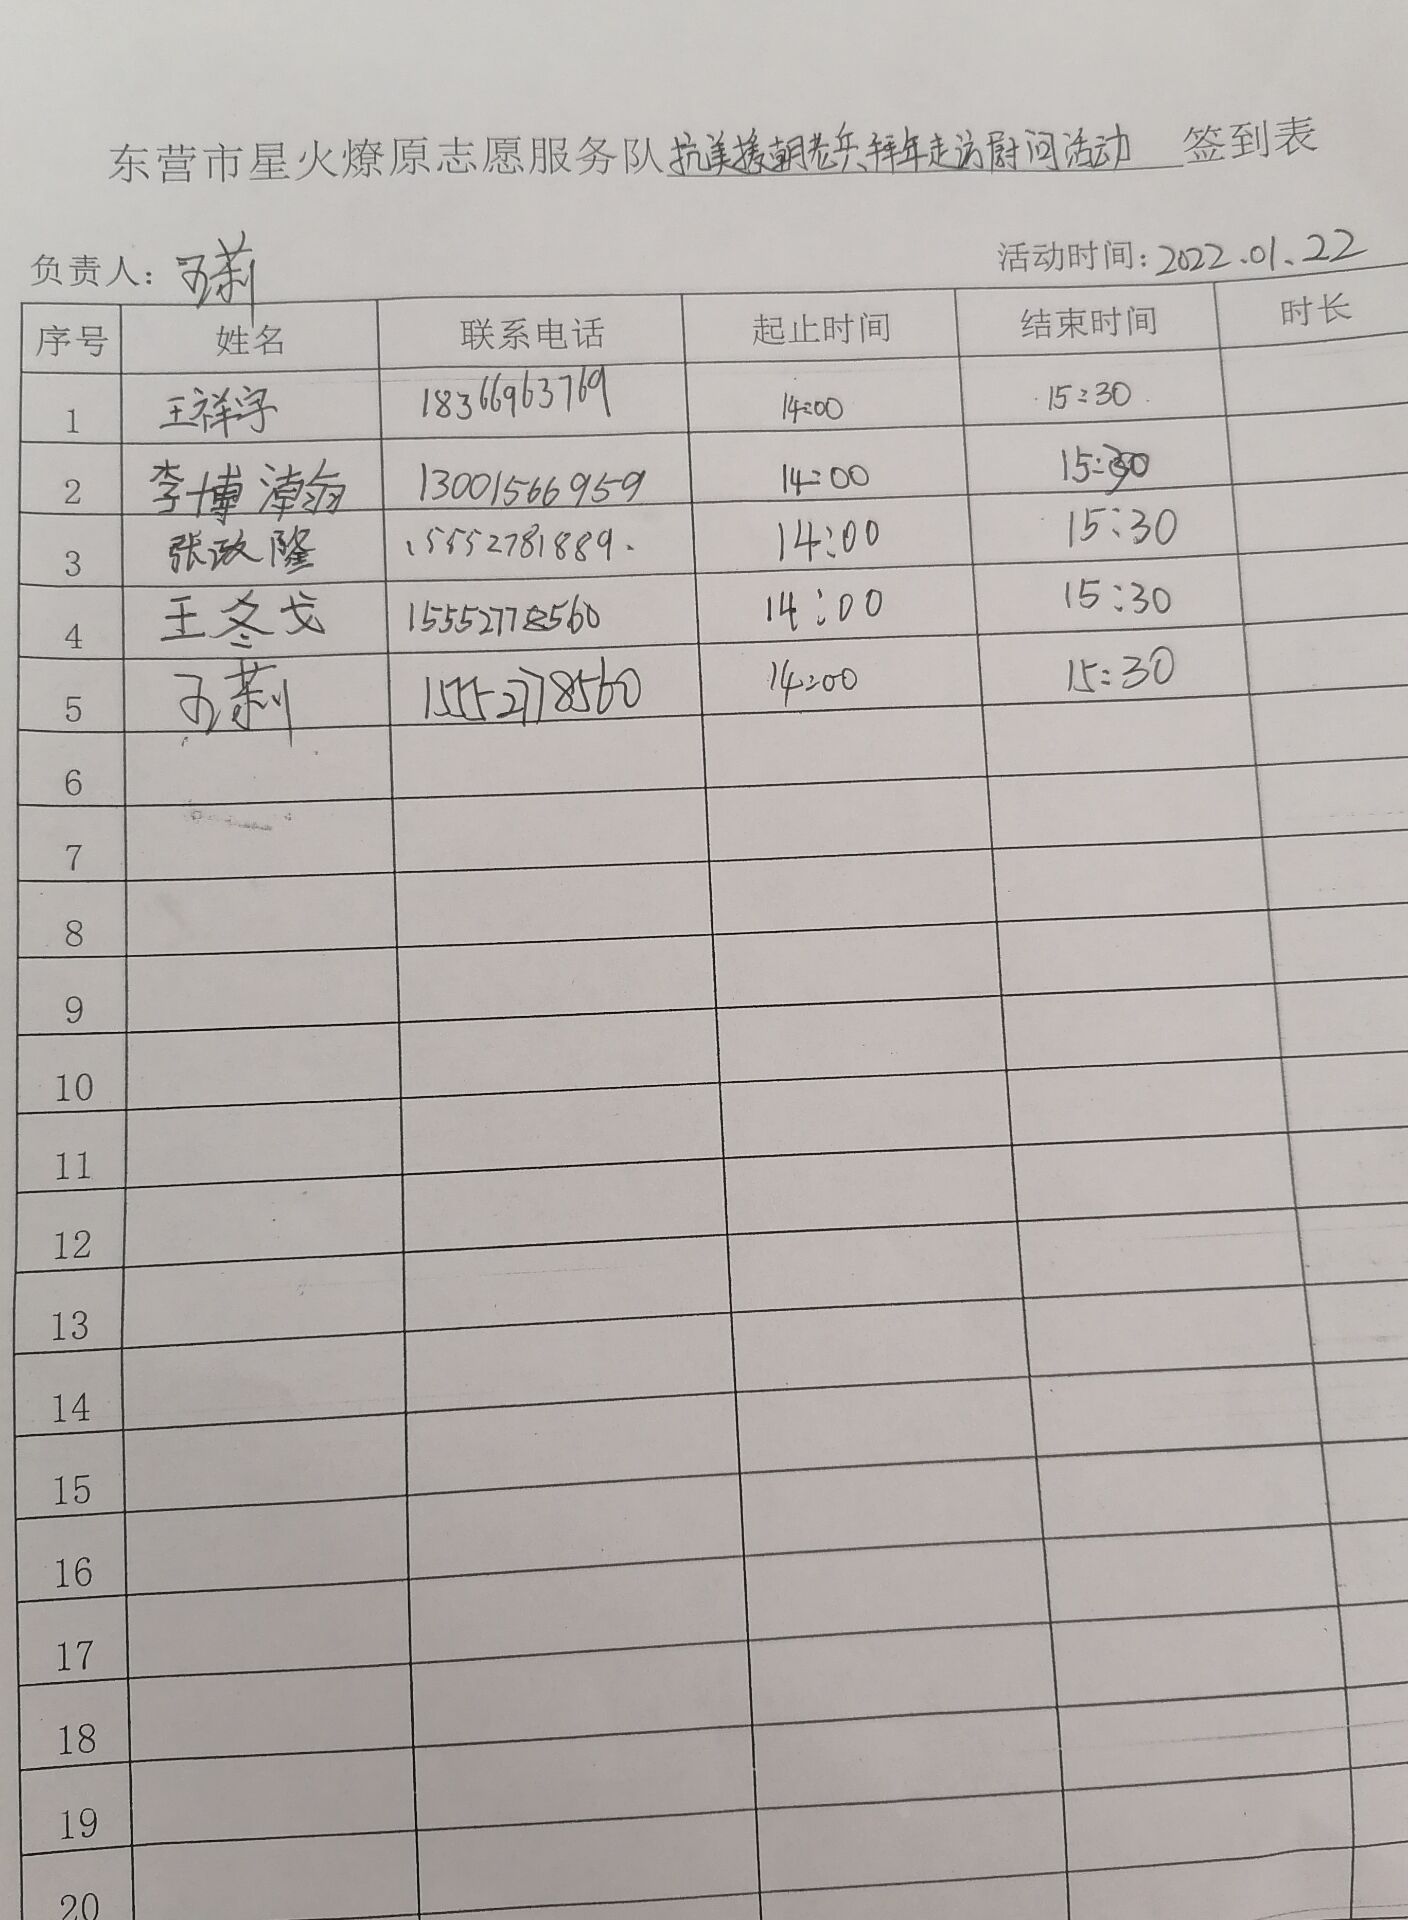 东营市星火燎原志愿服务队抗美援朝老兵拜年走访慰问活动 签到表
负责人: 活动时间:2022.01.22
序号 姓名 联系电话 起止时间 结束时间 时长
1 王祥宇 18366963769 14:00 15:30
2 李博瀚 13001566959 14:00 15:30
3 张政隆 15552781889 14:00 15:30
4 王冬戈 15552778560 14:00 15:30
5 15552778560 14:00 15:30
6
7
8
9
10
11
12
13
14
15
16
17
18
19
20